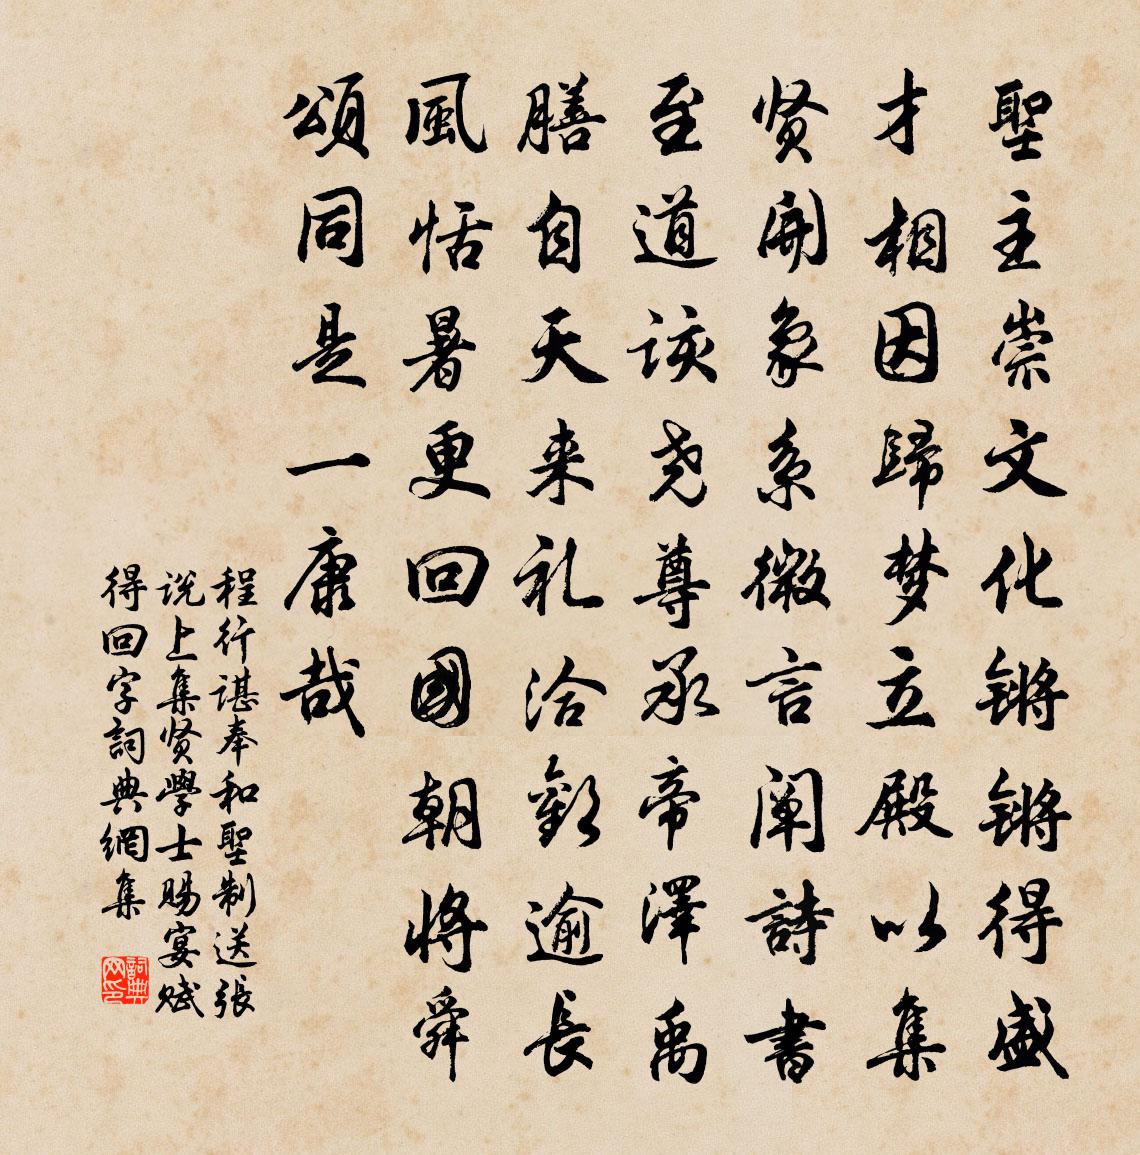 聖主崇文化锵锵得盛
才相因歸梦立殿以集
贤開象系微言阐詩書
至道該尧尊承帝澤禹
膳自天来礼洽歡逾長
風恬暑更回國朝将舜
頌同是一康哉
程行谌奉和聖制送張
说上集贤學士賜宴赋
得回字詞典網集
詞典网印